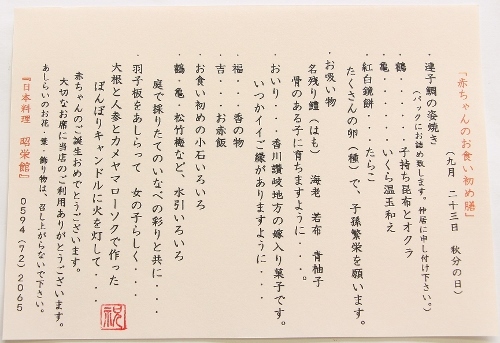 『赤ちゃんのお食い初め膳』
(九月 二十三日 秋分の日)
・連子鯛の姿焼き
(パックにお詰め致します。仲居に申し付け下さい。)
・鶴・・・・・子持ち昆布とオクラ
・亀・・・・・いくら温玉和え
・紅白鏡餅・・・・たらこ
たくさんの卵(種)で、子孫繁栄を願います。
・お吸い物
名残り鱧(はも) 海老 若布 青柚子
骨のある子に育ちますように・・・。
・おいり・・・香川讃岐地方の嫁入り菓子です。
いつかイイご縁がありますように・・・・
・福・・香の物
・吉・・お赤飯
・お食い初めの小石いろいろ
・鶴・亀・松竹梅など、水引いろいろ
庭で採りたてのいなべの彩りと共に・・・
・羽子板をあしらって 女の子らしく・・・
大根と人参とカメヤマローソクで作った
ぼんぼりキャンドルに火を灯して・・・・
赤ちゃんのご誕生おめでとうございます。
大切なお席に当店のご利用ありがとうございます。
あしらいのお花・葉・飾り物は、召し上がらないで下さい。
『日本料理 昭栄館』 0594(72)2065
祝